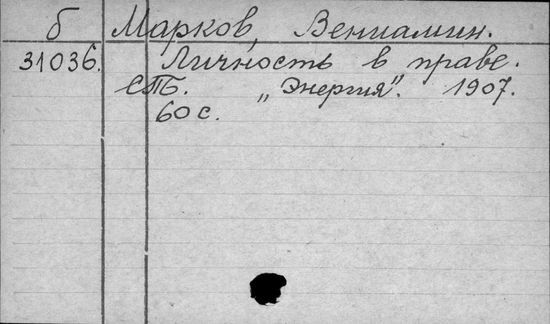 б Марков, Вениамин.
31036. Личность в праве.
СПБ. „Энергия". 1907.
60 с.